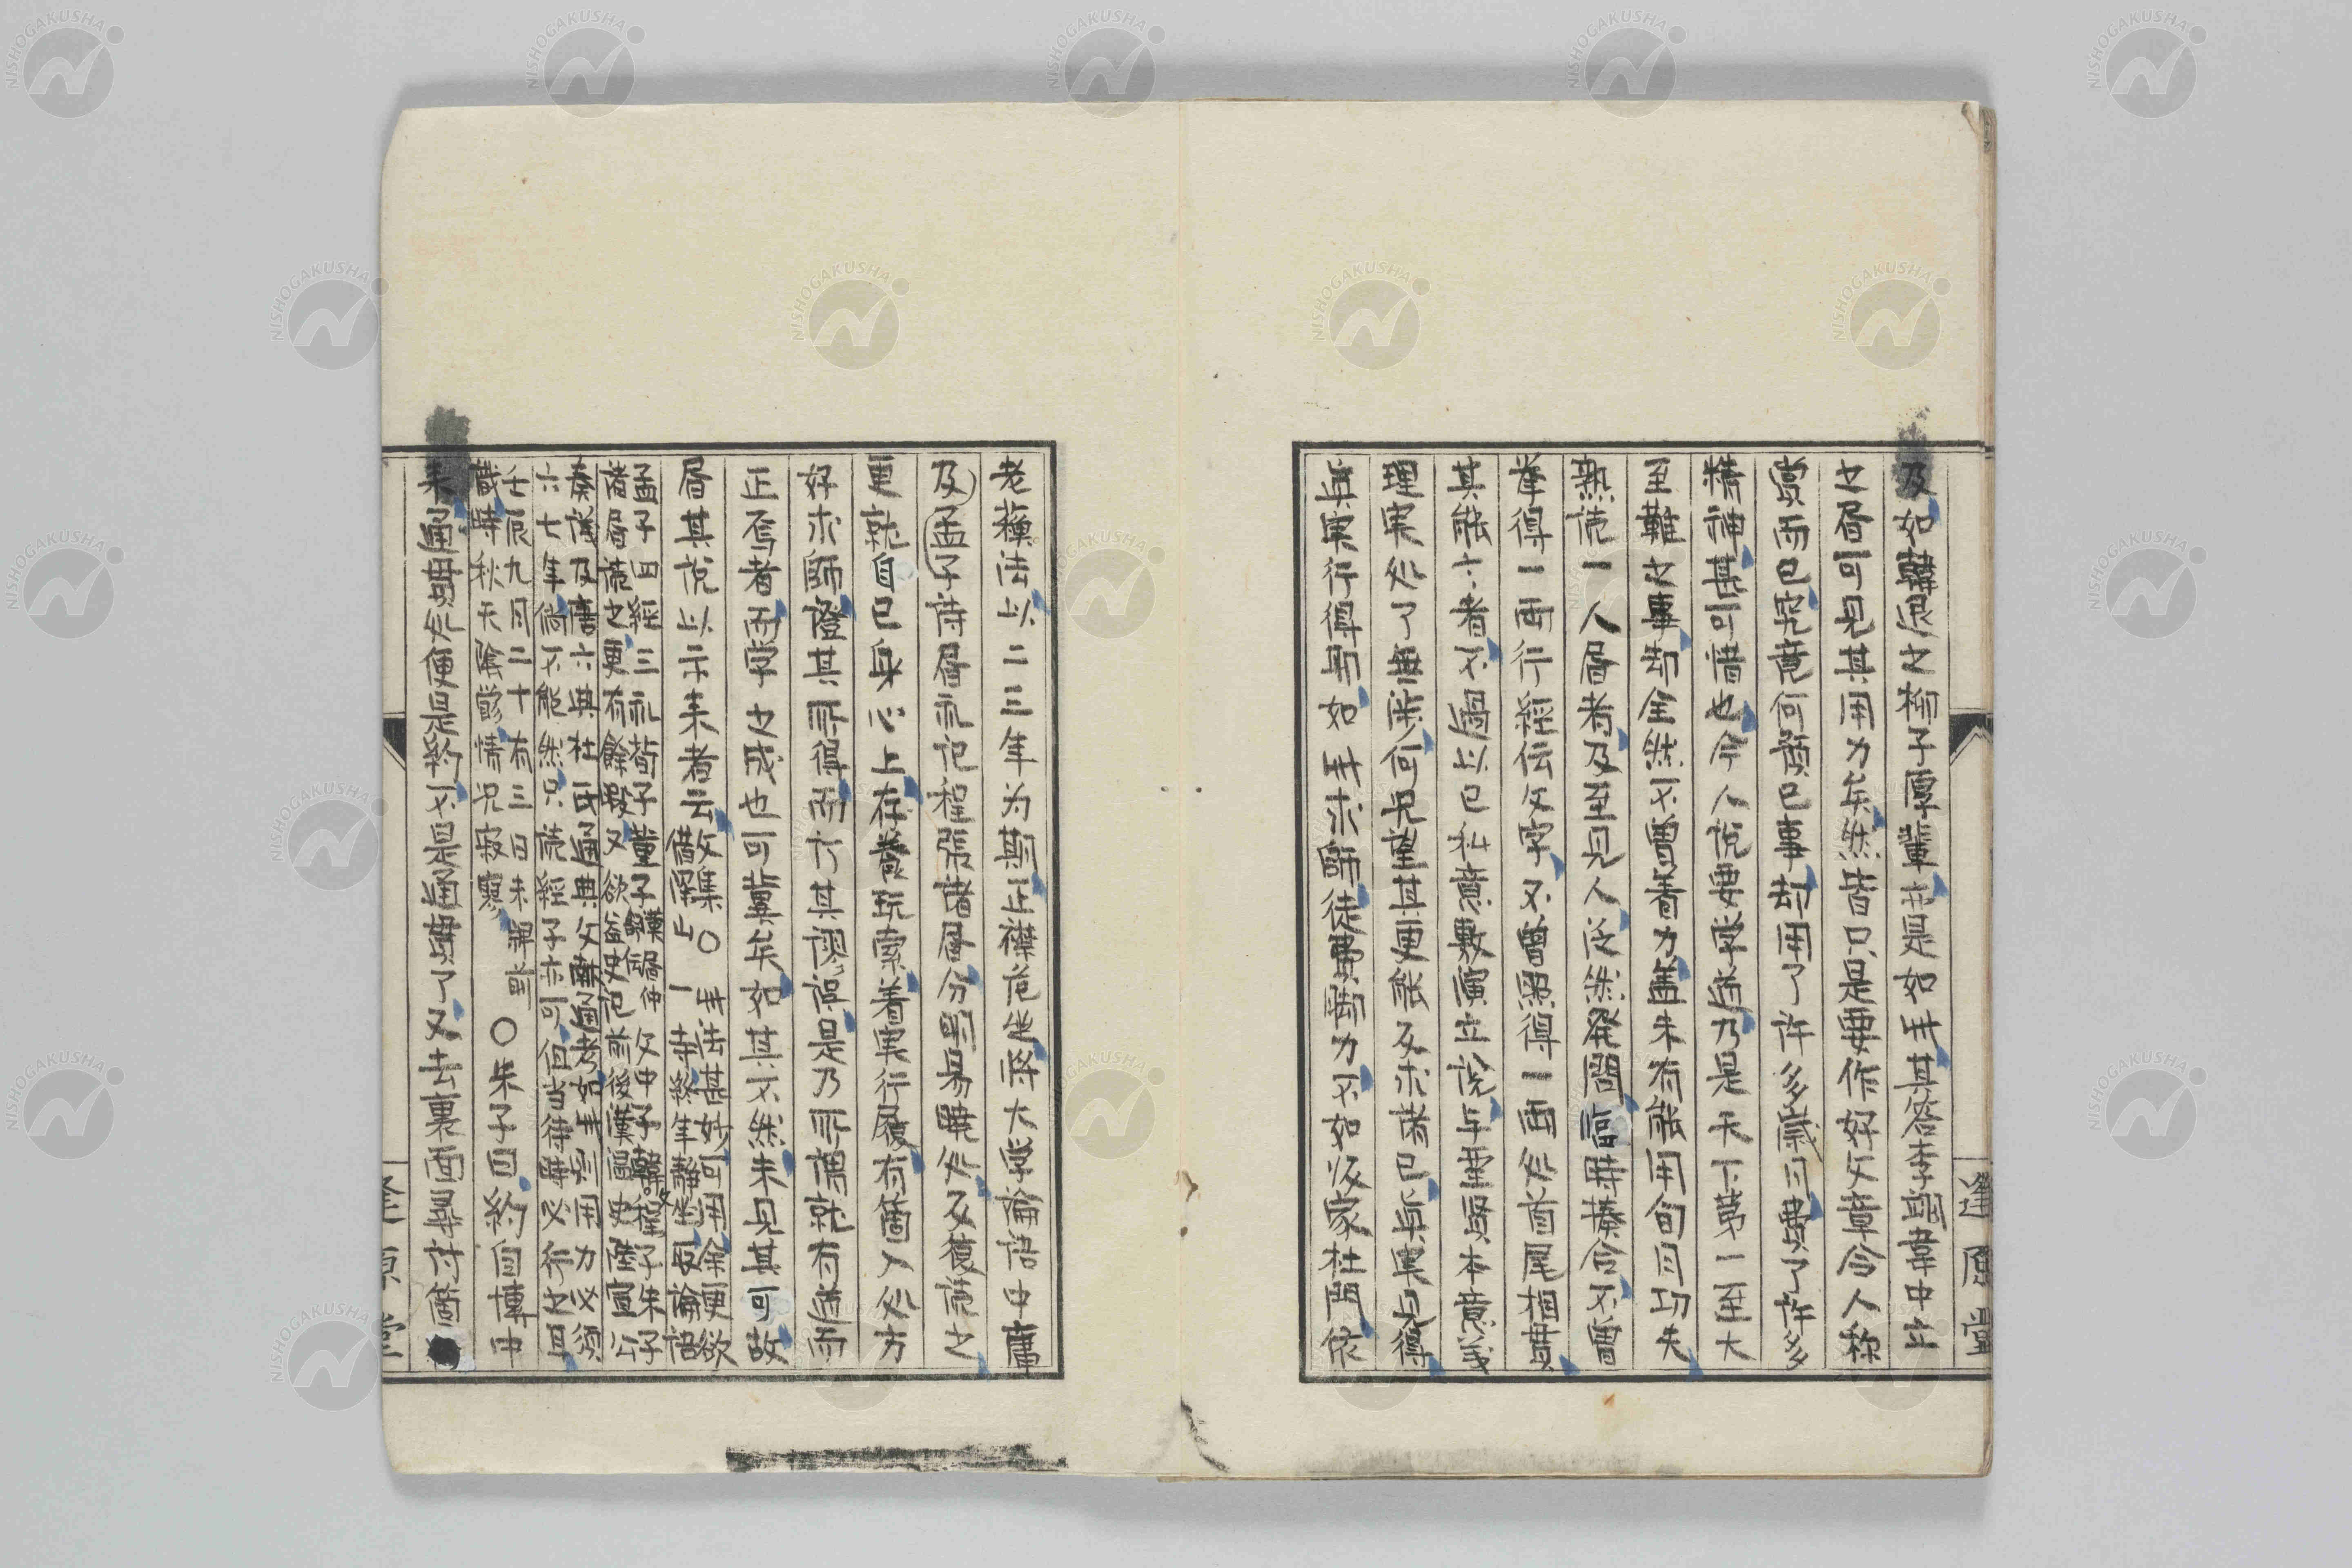 及如韓退之柳子厚輩亦是如此其答李翊韋中立
之書可見其用力矣然皆只是要作好文章令人称
賞而已究竟何預己事却用了许多歳月費了许多
精神甚可惜也今人说要学道乃是天下第一至大
至難之事却全然不曽著力蓋未有能用旬月功夫
熟読一人書者及至見人泛然発問臨時揍合不曽
挙得一両行経伝文字不曽照得一両処首尾相貫
其能言者不過以己私意敷演立説与聖賢本意義
理実処了無渉何况望其更能反求諸己真実見得
真実行得耶如此求師徒費脚力不如归家杜門依
老蘓法以二三年为期正襟危坐将大学論語中庸
及孟子詩書礼记程張諸書分明易暁処反復読之
更就自己身心上存養玩索着実行履有箇入処方
好求師證其所得而订其謬误是乃所謂就有道而
正焉者而学之成也可冀矣如其不然未見其可故
書其说以示来者云
文集
借澤止
〇
此法甚妙可用余更欲
一
年終年静坐反論語
孟子四経三礼荀子董子
文中子韓子程子朱子
諸書読之更有餘暇又欲盆史记前後漢温史陸宣公
奏議及唐六典杜氏通典文献通考如此则用力必須
六七年倘不能然只読経子亦可但当待時必行之耳
壬辰九月二十有三日未
歳時秋天陰
情况寂寥
〇朱子曰約自博中
来通貫処便是約不是通貫了又去裏面尋讨箇
逢原堂
逢原堂
NISHOGAKUSHA